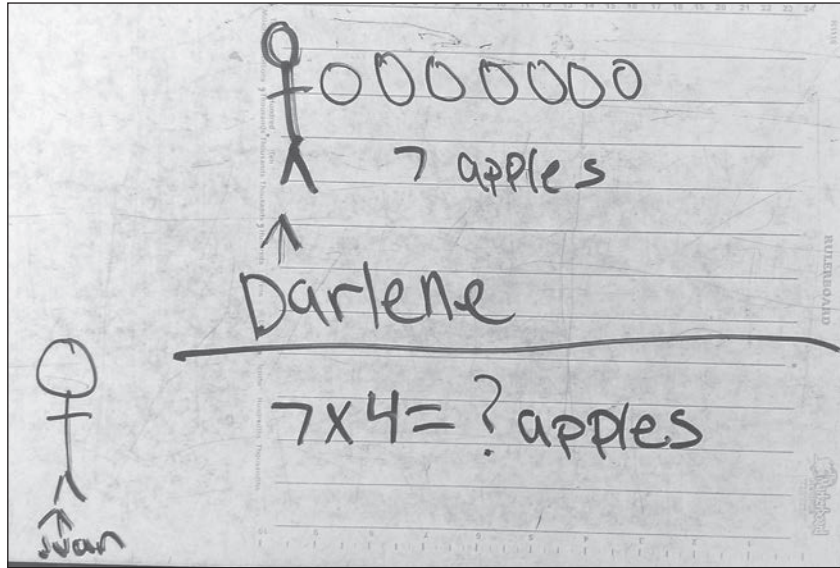 7 apples
Darlene
7x4= ? apples
Juan
RULERBOARD